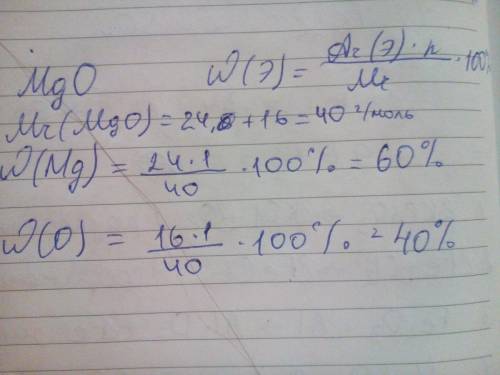 MgO W(Э) = Ar(Э)·n / Mr ·100%
Mr(MgO) = 24 + 16 = 40 г/моль
W(Mg) = 24·1 / 40 ·100% = 60%
W(O) = 16·1 / 40 ·100% = 40%